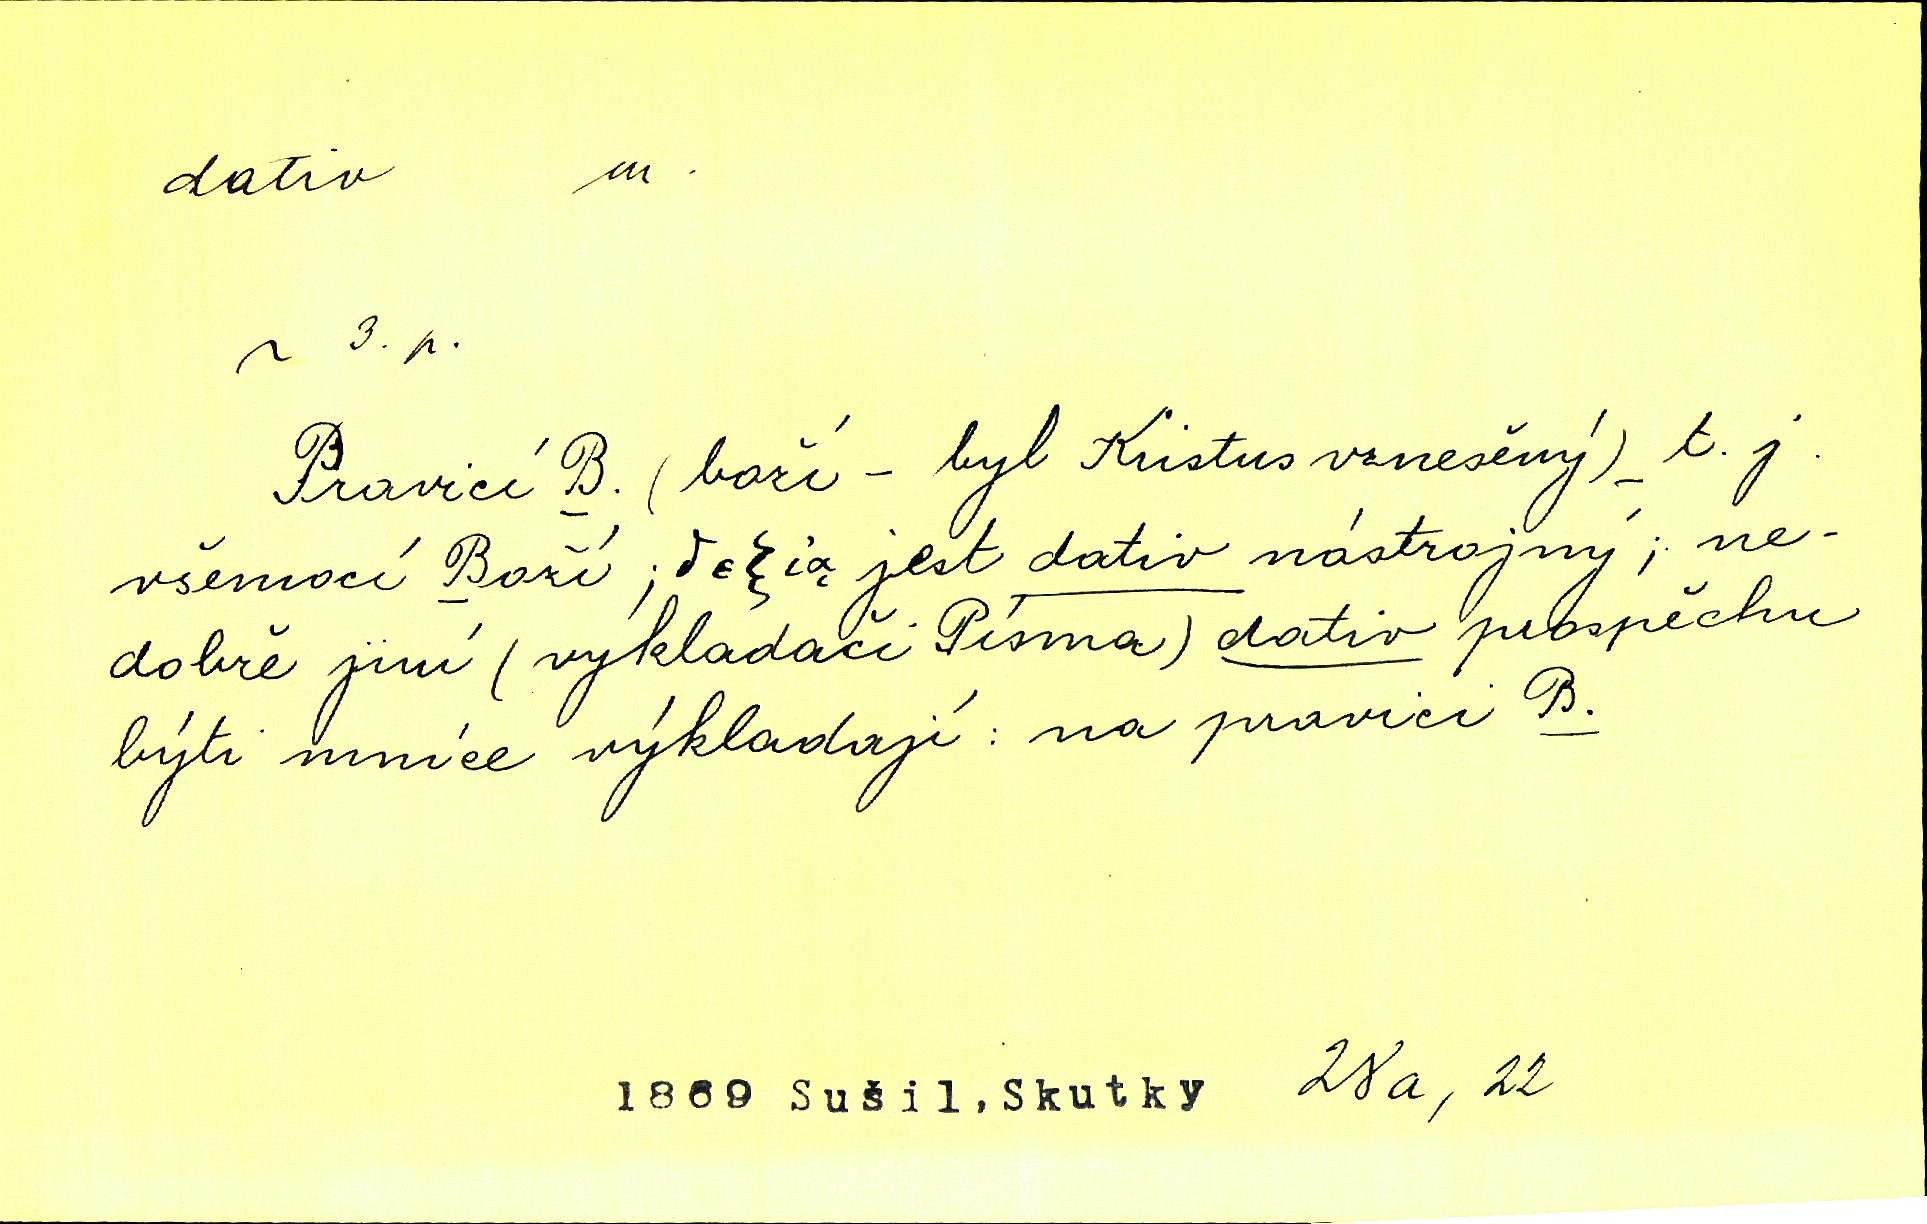 dativ m.
~ 3. p.
Pravicí B. (boží – byl Kristus vznešěný) t. j.
všemocí Boží; δεξιᾳ jest dativ nástrojný; ne-
dobře jiní (vykladači Písma) dativ prospěchu
býti mníce výkladají: na pravici B.
1869 Sušil,Skutky 28a, 22